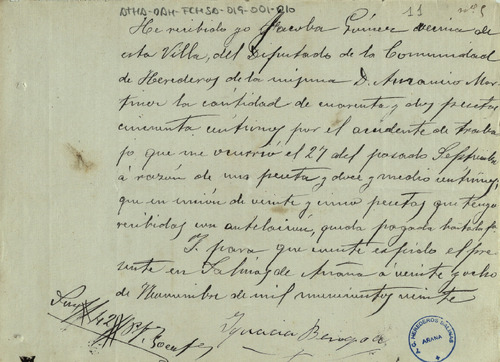 ATHA-DAH-FCHSA-019-001-010
11
nº 5
He recibido yo Jacoba Gómez vecina de
esta Villa, del Diputado de la Comunidad
de Herederos de la misma D. Ausencio Mar-
tinez la cantidad de cuarenta y dos pesetas
cincuenta centimos por el accidente de traba-
jo que me ocurrió el 27 del pasado Septiembre
á razón de una peseta y doce y medio centimos,
que en unión de veinte y cinco pesetas que tengo
recibidas con antelación, queda pagada hasta la
Y para que conste expido el pre-
sente en Salinas de Añana á veinte y ocho
de Noviembre de mil novecientos veinte
Son 42 pts 50 cents
Ignacia
A.C. HEREDEROS SALINAS
AÑANA